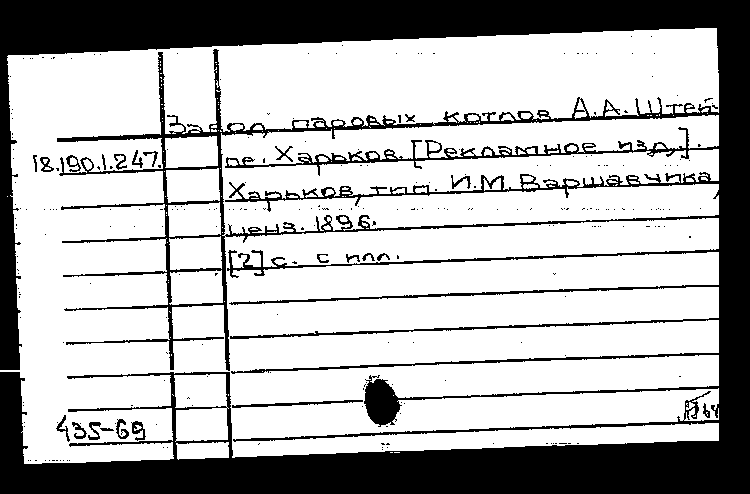 Завод паровых котлов А.А. Штей-
18.190.1.247. пе. Харьков. [Рекламное изд.].
Харьков, тип. И.М. Варшавчика,
ценз. 1896.
[2] с. с илл.
435-69